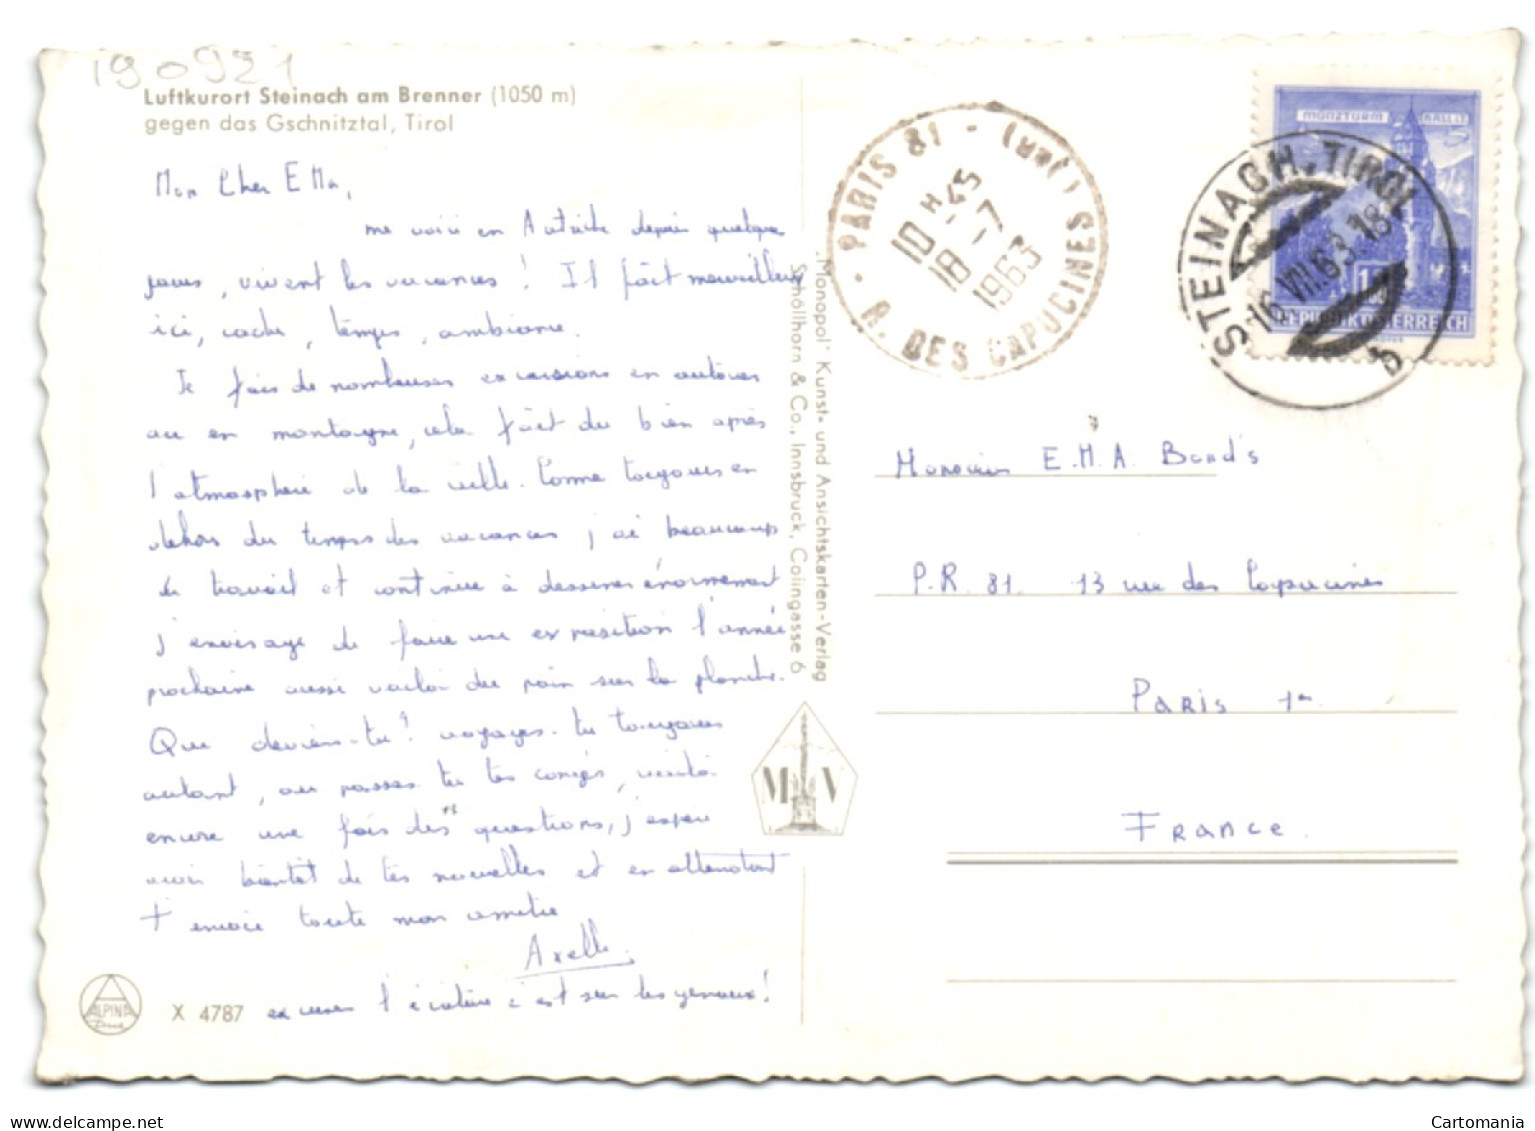 190921
Luftkurort Steinach am Brenner (1050 m)
gegen das Gschnitztal, Tirol
Mon Cher EMA,
me voici en Autriche depuis quelque
jours, vivent les vacances ! Il fait merveilleux
ici, cadre, temps, ambiance.
Je fais de nombreuses excursions en autocar
ou en montagne, cela fait du bien après
l'atmosphère de la ville. Comme toujours en
dehors du temps des vacances j'ai beaucoup
de travail et continue à dessiner énormement
j'envisage de faire une exposition l'année
prochaine aussi voilà du pain sur la planche.
Que deviens-tu? voyages-tu toujours
autant, ou passes tu tes congés, voilà
encore une fois des questions, j'espère
avoir bientôt de tes nouvelles et en attendant
t'envoie toute mon amitié
Axelle.
excuses l'écriture c'est sur les genoux!
ALPINA
X 4787
„Monopol" Kunst- und Ansichtskarten-Verlag
Schöllhorn & Co., Innsbruck, Colingasse 6
M V
PARIS 81 - R. DES CAPUCINES
10 H 45
18 - 7
1963
MÜNZTURM HALL i.T.
REPUBLIK ÖSTERREICH
STEINACH, TIROL
16.VII.63.18
b
Monsieur E.M.A. Bonds
P.R. 81. 13 rue des Capucines
Paris 1er
FRANCE.
Cartomania